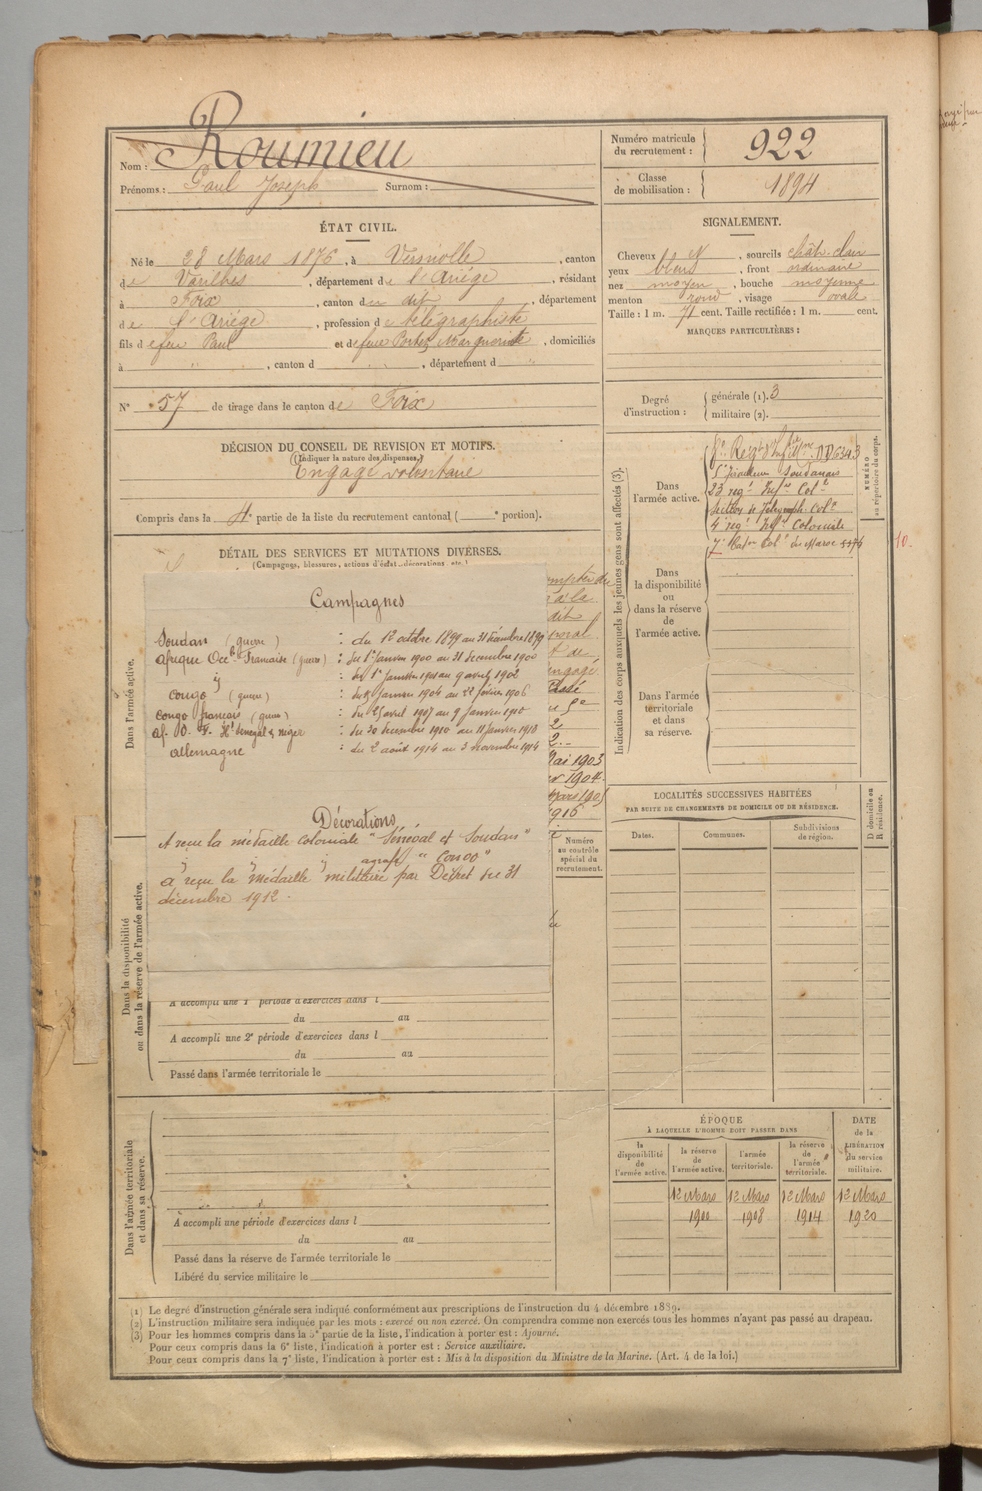 Nom : Roumieu
Prénoms : Paul Joseph Surnom :
Numéro matricule du recrutement : 922
Classe de mobilisation : 1894
ÉTAT CIVIL.
Né le 23 Mars 1876, à Verniolle, canton
de Varilhes, département de l'Ariège, résidant
à Foix, canton du dit, département
de l'Ariège, profession de télégraphiste
fils de feu Paul et de feue Portez Marguerite, domiciliés
à , canton d , département d
N° 57 de tirage dans le canton de Foix
SIGNALEMENT.
Cheveux N, sourcils chât. clair
yeux bleus, front ordinaire
nez moyen, bouche moyenne
menton rond, visage ovale
Taille : 1 m. 71 cent. Taille rectifiée : 1 m. cent.
MARQUES PARTICULIÈRES :
Degré d'instruction : générale (1). 3
militaire (2).
DÉCISION DU CONSEIL DE REVISION ET MOTIFS.
(Indiquer la nature des dispenses.)
Engagé volontaire
Compris dans la 4e partie de la liste du recrutement cantonal ( e portion).
DÉTAIL DES SERVICES ET MUTATIONS DIVERSES.
(Campagnes, blessures, actions d'éclat, décorations, etc.)
Dans l'armée active.
Campagnes
Soudan (guerre) : du 12 octobre 1899 au 31 décembre 1899
Afrique Occle Française (guerre) : du 1er Janvier 1900 au 31 décembre 1900
ÿ du 1er Janvier 1901 au 9 avril 1902
Congo (guerre) : du 9 Janvier 1904 au 22 février 1906
Congo français (guerre) : du 25 avril 1907 au 9 Janvier 1910
Af. O. F. Ht Sénégal & Niger : du 30 décembre 1910 au 11 Janvier 1913
Allemagne : du 2 août 1914 au 3 novembre 1914
Décorations
A reçu la médaille coloniale "Sénégal et Soudan"
ÿ ÿ ÿ agrafe "Congo"
A reçu la Médaille militaire par Décret du 31
décembre 1912.
engagé
Mai 1903
1904
Mars 1905
Numéro
au contrôle
spécial du
recrutement.
Dans la disponibilité
ou dans la réserve de l'armée active.
A accompli une 1re période d'exercices dans l
du au
A accompli une 2e période d'exercices dans l
du au
Passé dans l'armée territoriale le
Dans l'armée territoriale
et dans sa réserve.
A accompli une période d'exercices dans l
du au
Passé dans la réserve de l'armée territoriale le
Libéré du service militaire le
Indication des corps auxquels les jeunes gens sont affectés (3).
Dans l'armée active.
NUMÉRO
au répertoire du corps.
Tirailleurs Soudanais
23 regt Infrie Colle
Section de Télégraph. Colle
4e regt Infie Coloniale
7e Baton Colal du Maroc
10.
Dans
la disponibilité
ou
dans la réserve
de
l'armée active.
Dans l'armée
territoriale
et dans
sa réserve.
LOCALITÉS SUCCESSIVES HABITÉES
PAR SUITE DE CHANGEMENTS DE DOMICILE OU DE RÉSIDENCE.
Dates. Communes. Subdivisions de région.
D domicile ou
R résidence.
ÉPOQUE
À LAQUELLE L'HOMME DOIT PASSER DANS
la disponibilité de l'armée active.
la réserve de l'armée active.
l'armée territoriale.
la réserve de l'armée territoriale.
DATE de la LIBÉRATION du service militaire.
12 Mars 12 Mars 12 Mars 12 Mars
1900 1908 1914 1920
(1) Le degré d'instruction générale sera indiqué conformément aux prescriptions de l'instruction du 4 décembre 1889.
(2) L'instruction militaire sera indiquée par les mots : exercé ou non exercé. On comprendra comme non exercés tous les hommes n'ayant pas passé au drapeau.
(3) Pour les hommes compris dans la 5e partie de la liste, l'indication à porter est : Ajourné.
Pour ceux compris dans la 6e liste, l'indication à porter est : Service auxiliaire.
Pour ceux compris dans la 7e liste, l'indication à porter est : Mis à la disposition du Ministre de la Marine. (Art. 4 de la loi.)